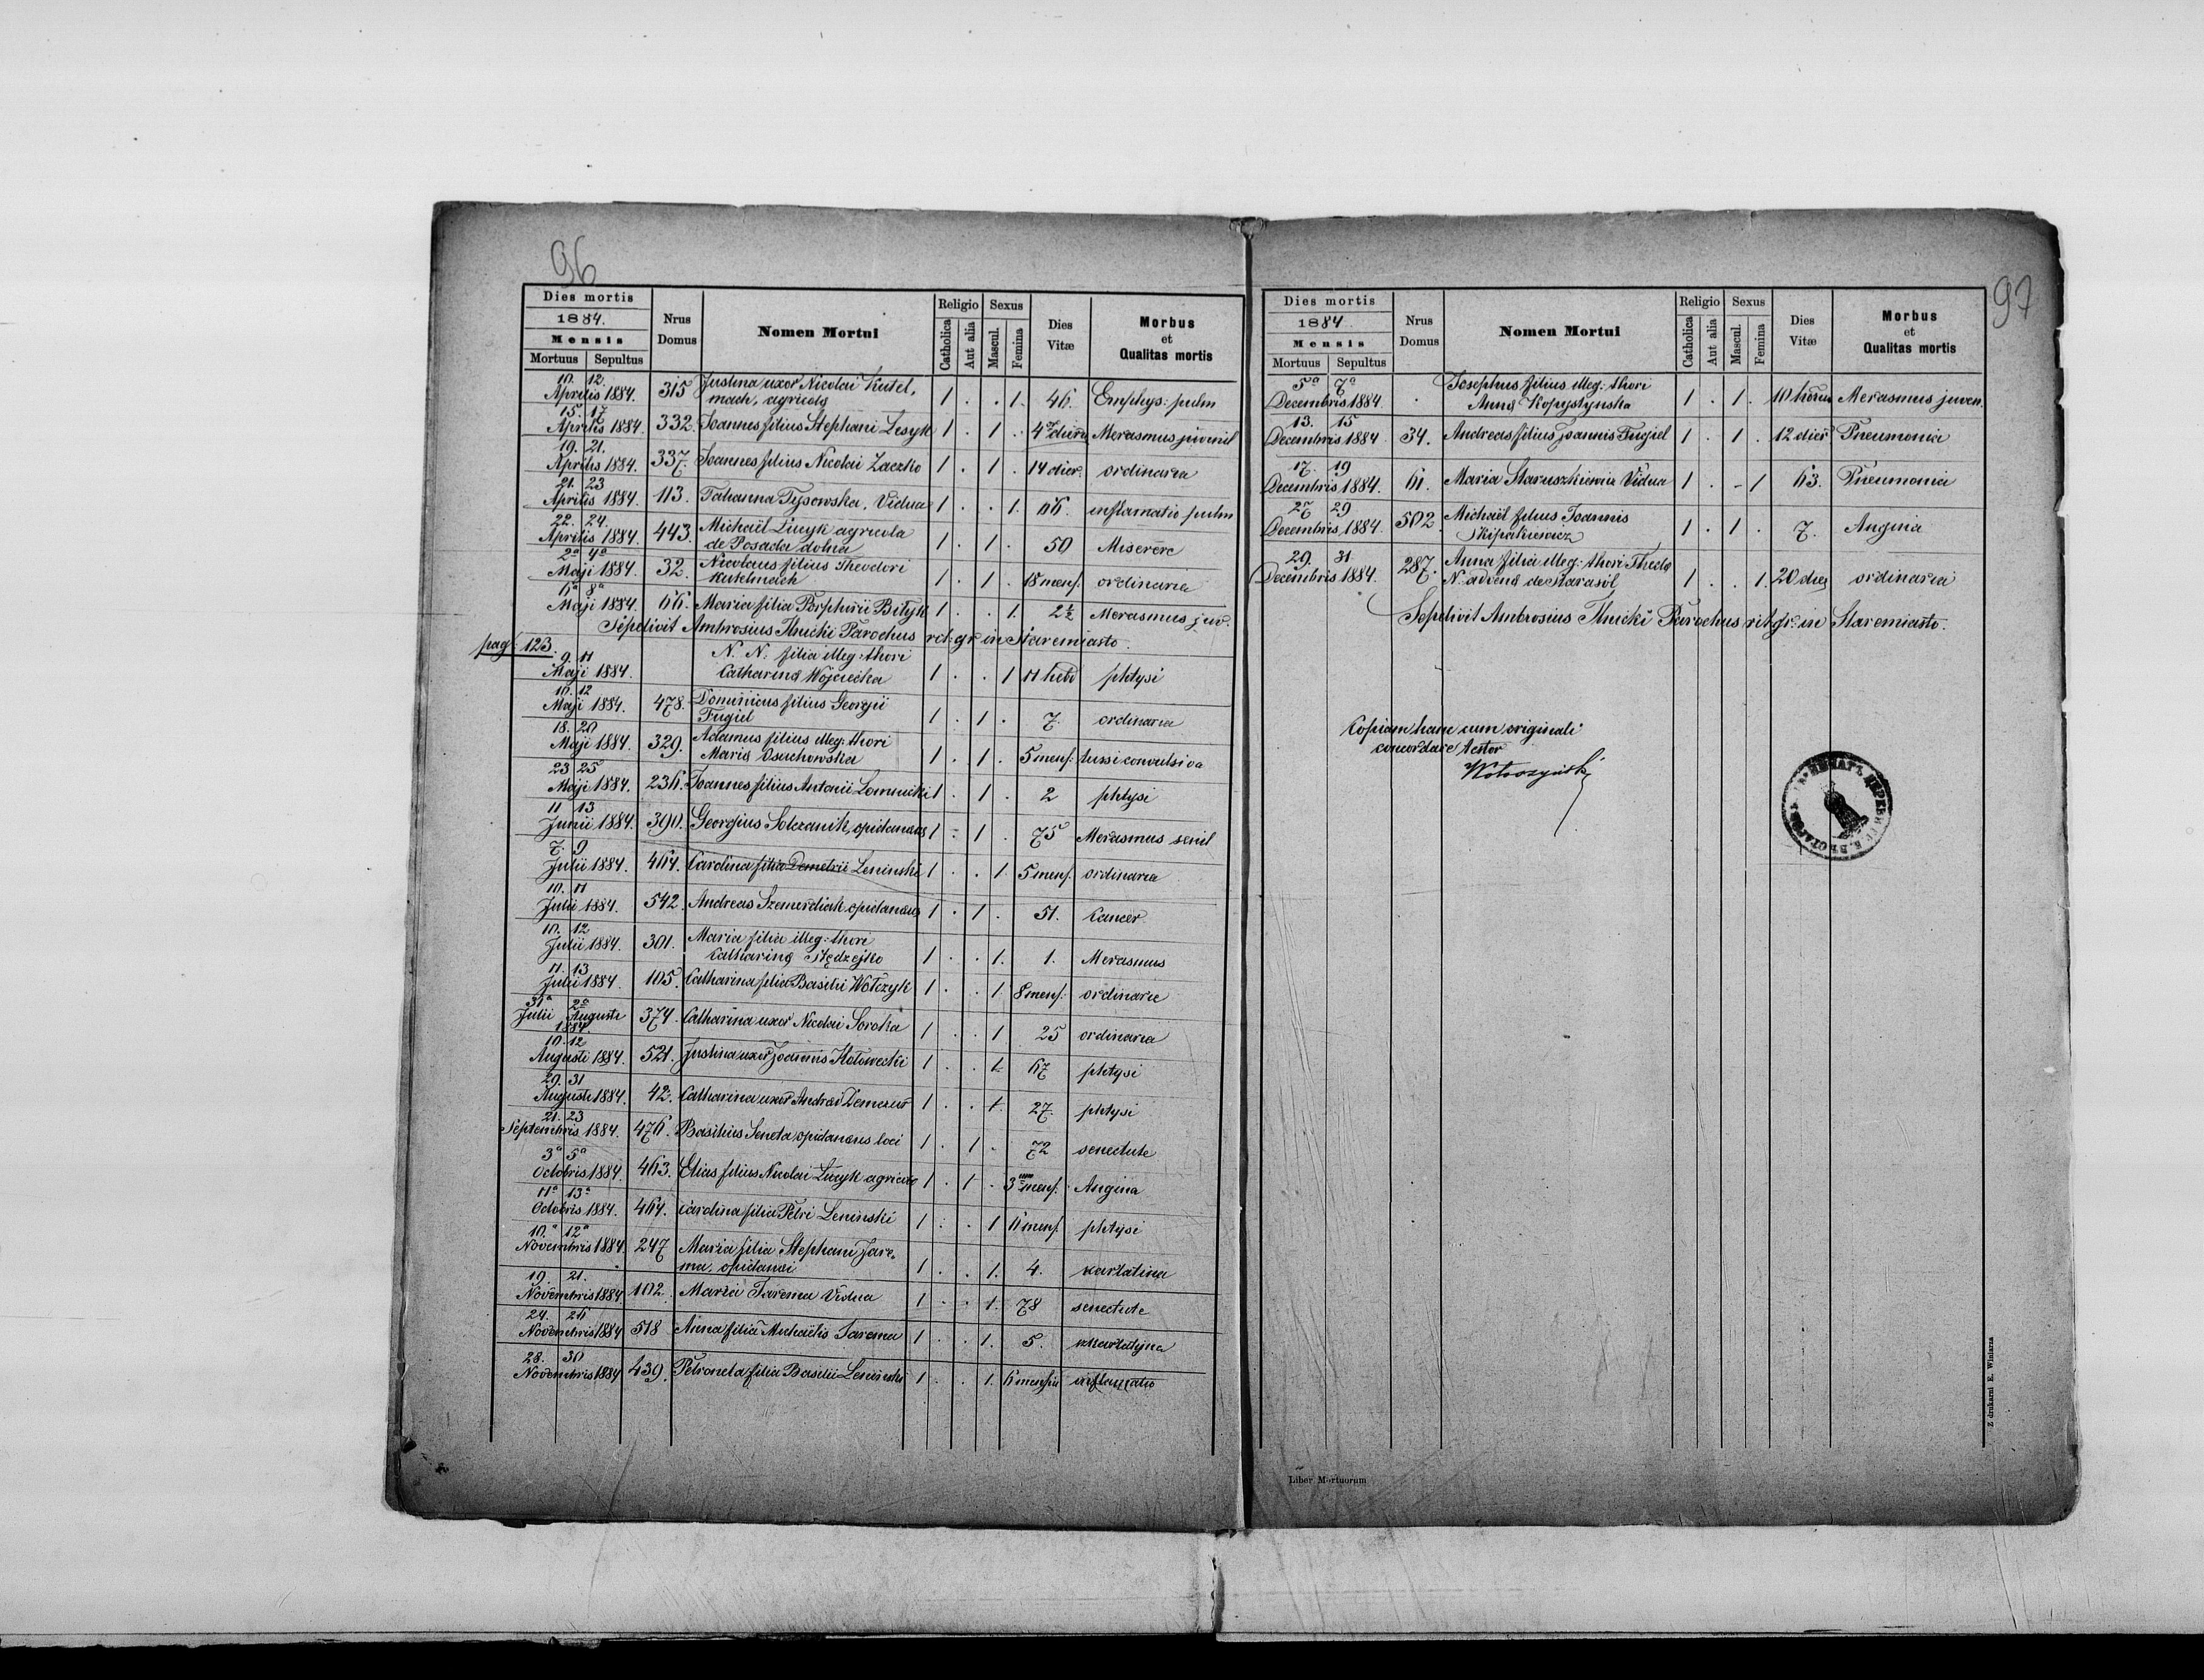 96
Dies mortis
1884.
Mensis
Mortuus Sepultus
Nrus Domus
Nomen Mortui
Religio
Catholica Aut alia
Sexus
Mascul. Femina
Dies Vitæ
Morbus et Qualitas mortis
10. 12. Aprilis 1884. 315 Justina uxor Nicolai Kutel, mach, agricola 1 . . 1. 46. Emphys: pulm
15. 17 Aprilis 1884. 332. Joannes filius Stephani Lesyk 1 . 1 . 4 dierū Merasmus juvenil
19. 21. Aprilis 1884. 337. Joannes filius Nicolai Zaczko 1 . 1 . 14 dier. ordinaria
21. 23 Aprilis 1884. 113. Tatianna Tysowska, Vidua 1 . . 1. 66. inflamatio pulm
22. 24. Aprilis 1884. 443. Michaël Lucyk agricola de Posada dolna 1 . 1 . 50 Miserere
2ª 4ª Maji 1884. 32. Nicolaus filius Theodori Kutelmach 1 . 1 . 18 mens. ordinaria
6ª 8ª Maji 1884. 66. Maria filia Porphirii Bityk 1 . . 1. 2½ Merasmus juv.
Sepelivit Ambrosius Ilnicki Parochus rit. gr in Staremiasto.
pag: 123.
9. 11 Maji 1884. N. N. filia illeg: thori Catharina Wojciecka 1 . . 1 11 hebd phtysi
10. 12 Maji 1884. 478. Dominicus filius Georgii Fugiel 1 . 1 . 7. ordinaria
18. 20 Maji 1884. 329. Adamus filius illeg: thori Maria Osuchowska 1 . 1 . 5 mens: tussi convulsiva
23 25 Maji 1884. 236. Joannes filius Antonii Lomnicki 1 . 1 . 2 phtysi
11 13 Junii 1884. 390. Georgius Solczanik, opidanus 1 . 1 . 75 Merasmus senil
7. 9 Julii 1884. 464. Carolina filia Demetrii Leninski 1 . . 1. 5 mens. ordinaria
10. 11 Julii 1884. 542. Andreas Szemerdiak opidaneus 1 . 1 . 51. Cancer
10. 12 Julii 1884. 301. Maria filia illeg: thori Catharina 1 . . 1. 1. Merasmus
11. 13 Julii 1884. 105. Catharina filia Basilii Wołczyk 1 . . 1. 8 mens: ordinaria
31ª 2ª Julii Augusti 1884. 374. Catharina uxor Nicolai Soroka 1 . . 1 25 ordinaria
10. 12 Augusti 1884. 521. Justina uxor Joannis 1 . . 1. 67 phtysi
29. 31 Augusti 1884. 42. Catharina uxor Andrei Demczur 1 . . 1. 27. phtysi
21. 23 Septembris 1884. 476. Basilius Seneta opidaneus loci 1 . 1 . 72 senectute
3ª 5ª Octobris 1884. 463. Elias filius Nicolai Lucyk agricola 1 . 1 . 3 mens. Angina
11ª 13ª Octobris 1884. 464. Carolina filia Petri Leninski 1 . . 1 6 mens. phtysi
10ª 12ª Novembris 1884. 247 Maria filia Stephani Jare, ma, opidanei 1 . . 1. 4. karlatina
19. 21. Novembris 1884. 102. Maria Jarema Vidua 1 . . 1. 78 senectute
24. 26 Novembris 1884 518 Anna filia Michaëlis Jarema 1 . . 1. 5. szkarlatyna
28. 30 Novembris 1884 439. Petronela filia Basilii Leninski 1 . . 1. 6 mensiu inflamatio
97
Dies mortis
1884.
Mensis
Mortuus Sepultus
Nrus Domus
Nomen Mortui
Religio
Catholica Aut alia
Sexus
Mascul. Femina
Dies Vitæ
Morbus et Qualitas mortis
5ª 7ª Decembris 1884. . Josephus filius illeg: thori Anna Kopystynska 1 . 1 . 10 horar Merasmus juven.
13. 15 Decembris 1884 34. Andreas filius Joannis Fugiel 1 . 1 . 12 dier Pneumonia
17. 19 Decembris 1884. 61. Maria Staruszkiewicz Vidua 1 . - 1 63. Pneumonia
27 29 Decembris 1884. 502 Michaël filius Joannis Skipakiewicz 1 . 1 . 7. Angina
29. 31. Decembris 1884. 287. Anna filia illeg: thori Thecla N. advena de Starasol 1 . . 1. 20 dies ordinaria
Sepelivit Ambrosius Ilnicki Parochus rit. gr. in Staremiasto.
Copiam hanc cum originali
concordare testor
Liber Mortuorum
Z drukarni E. Winiarza